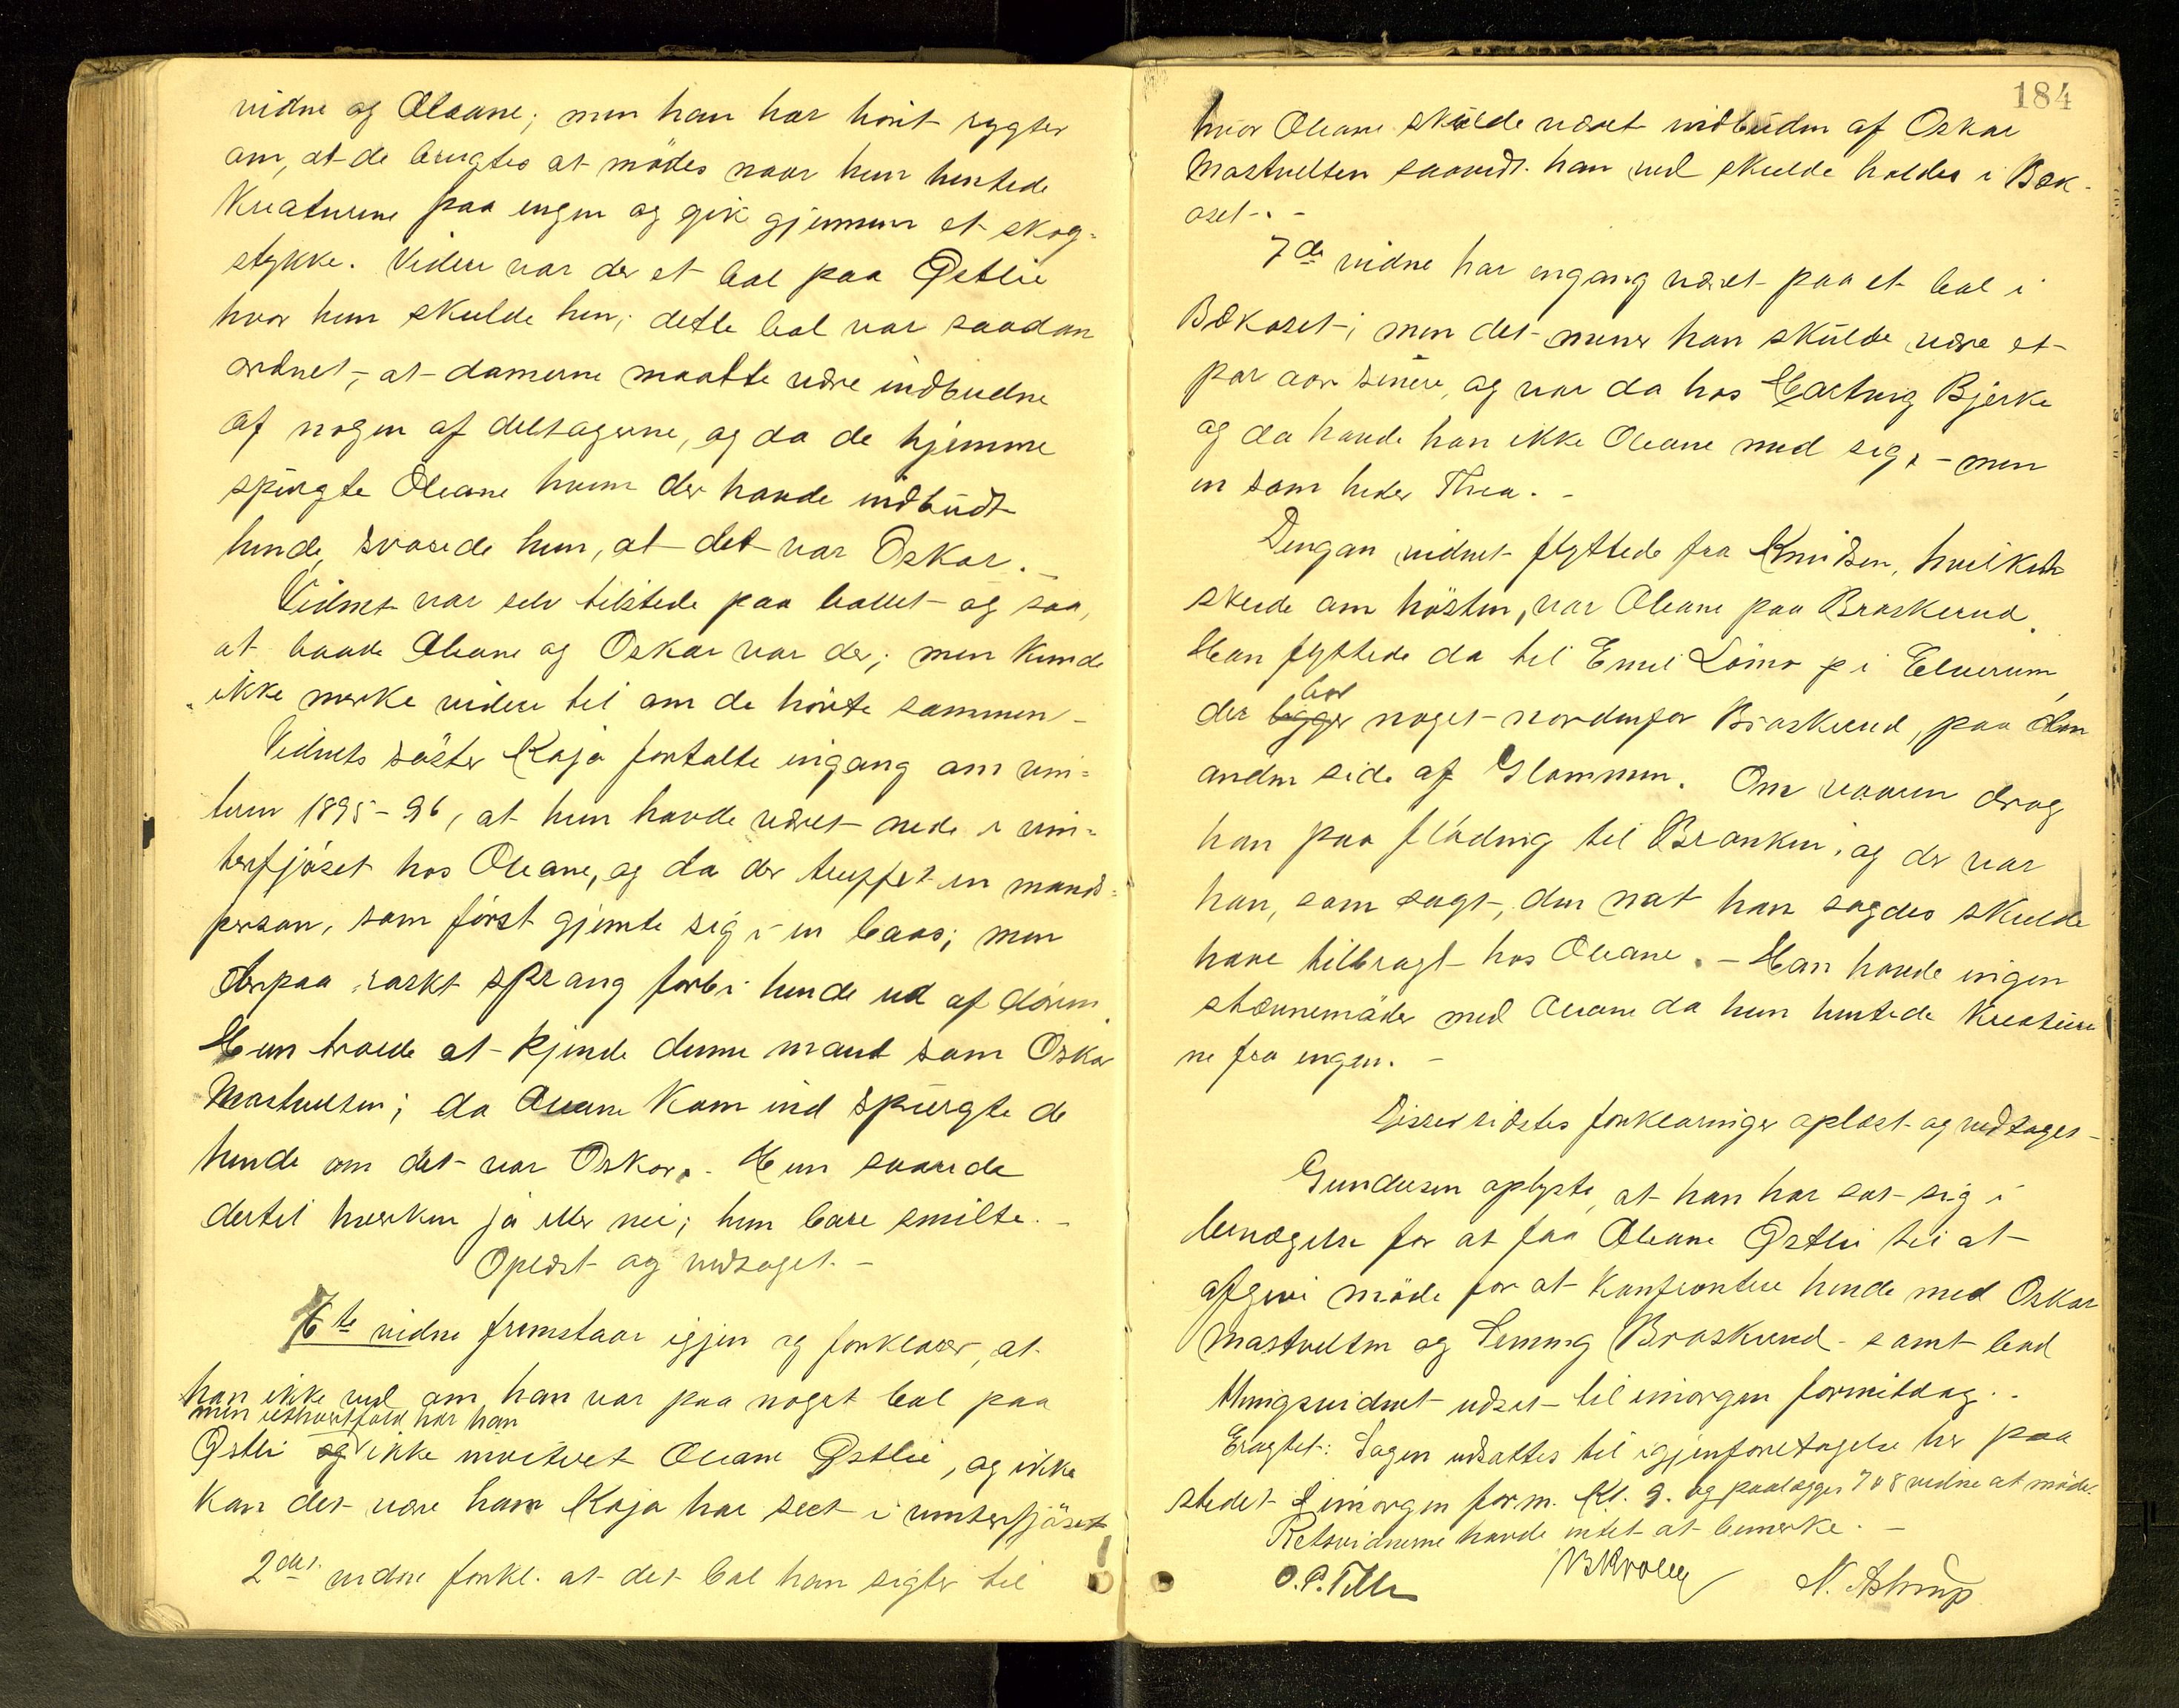 vidne og Oleane; men han har hört rygter
om, at de brugtes at mödes naar hun hentede
Kreaturene paa engen og gik gjennem et skog-
stykke. Videre var der et bal paa Østlie
hvor hun skulde hen; dette bal var saadan
ordnet, at damerne maatte være indbudne
af nogen af deltagerne, og da de hjemme
spurgte Oleane hvem der havde indbudt
hende, svarede hun, at det var Oskar. -
Vidnet var selv tilstede paa ballet og saa,
at baade Oleane og Oskar var der; men kunde
ikke merke videre til om de hörte sammen -
Vidnets söster Kaja fortalte engang om vin-
teren 1895-96, at hun havde været nede i vin-
terfjöset hos Oleane, og da der truffet en mands-
person, som först gjemte sig i en baas; men
derpaa raskt sprang forbi hende ud af dören.
Hun troede at kjende denne mand som Oskar
Mastvelten; da Oleane kom ind spurgte de
hende om det var Oskar. Hun svarede
dertil hverken ja eller nei; hun bare smilte. -
Oplæst og vedtaget. -
7te vidne fremstaar igjen og forklarer, at
han ikke ved om han var paa noget bal paa
men ialfald har han
Østli og ikke inviteret Oleane Østlie, og ikke
kan det være ham Kaja har seet i vinterfjöset
2det vidne forkl. at det bal han sigter til
184
hvor Oleane skulde været indbuden af Oskar
Mastvelten saavidt han ved skulde holdes i Bæk-
oset. -
7de vidne har engang været paa et bal i
Bækoset; men det mener han skulde være et
par aar senere, og var da hos Hartvig Bjerke
og da havde han ikke Oleane med sig, - men
en som heder Thea. -
Dengan vidnet flyttede fra Knudsen, hvilket
skede om hösten, var Oleane paa Braskerud.
Han flyttede da til Emil Lömo p i Elverum,
bor
der ligger noget nordenfor Braskerud, paa den
anden side af Glommen. Om vaaren drog
han paa flödning til Branken, og der var
han, som sagt, den nat han sagdes skulde
have tilbragt hos Oleane. - Han havde ingen
stævnemöder med Oleane da hun hentede Kreature
ne fra engen. -
Disses sidstes forklaringer oplæst og vedtaget -
Gundersen oplyste, at han har sat sig i
bevægelse for at faa Oleane Østli til at
afgive möde for at konfrontere hende med Oskar
Mastvelten og Lemmig Braskerud - samt
udsat til imorgen formiddag. -
Eragtet: Sagen udsattes til igjenforetagelse her paa
stedet imorgen form. Kl. 9. og paalægges 7 o 8 vidne at möde.
Retsvidnerne havde intet at bemerke. -
O.P. N. Astrup